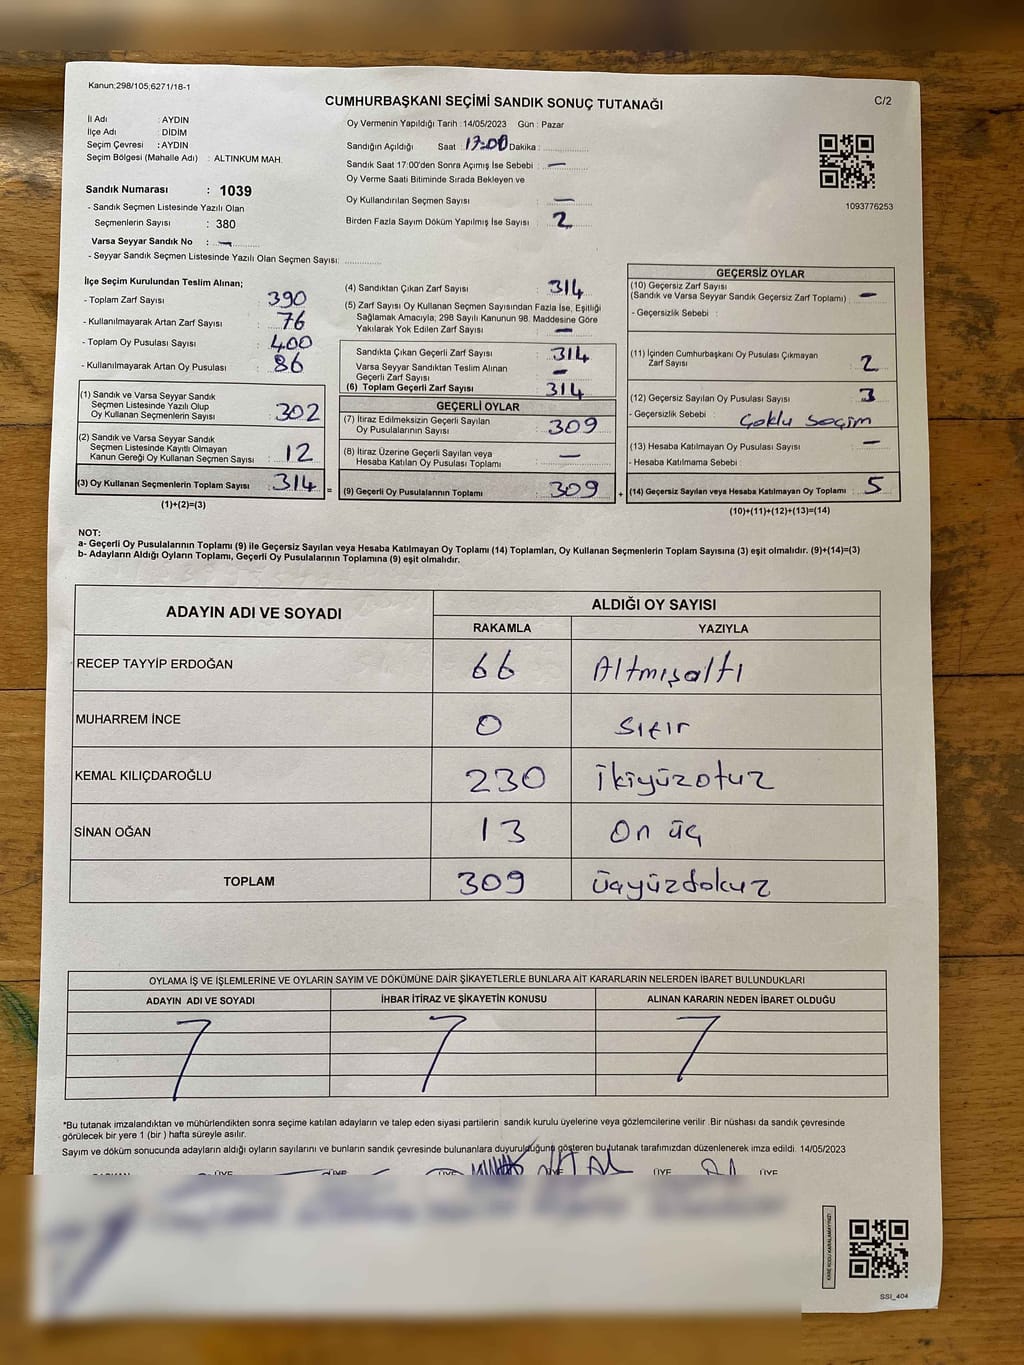 Kanun;298/105;6271/18-1
CUMHURBAŞKANI SEÇİMİ SANDIK SONUÇ TUTANAĞI
C/2
İl Adı : AYDIN
İlçe Adı : DİDİM
Seçim Çevresi : AYDIN
Seçim Bölgesi (Mahalle Adı) : ALTINKUM MAH.
Sandık Numarası : 1039
- Sandık Seçmen Listesinde Yazılı Olan
Seçmenlerin Sayısı : 380
Varsa Seyyar Sandık No : —
- Seyyar Sandık Seçmen Listesinde Yazılı Olan Seçmen Sayısı: ............
Oy Vermenin Yapıldığı Tarih : 14/05/2023 Gün : Pazar
Sandığın Açıldığı Saat : 17:00 Dakika : ............
Sandık Saat 17:00'den Sonra Açımış İse Sebebi : —
Oy Verme Saati Bitiminde Sırada Bekleyen ve
Oy Kullandırılan Seçmen Sayısı : —
Birden Fazla Sayım Döküm Yapılmış İse Sayısı : 2
1093776253
İlçe Seçim Kurulundan Teslim Alınan;
- Toplam Zarf Sayısı : 390
- Kullanılmayarak Artan Zarf Sayısı : 76
- Toplam Oy Pusulası Sayısı : 400
- Kullanılmayarak Artan Oy Pusulası : 86
(1) Sandık ve Varsa Seyyar Sandık
Seçmen Listesinde Yazılı Olup
Oy Kullanan Seçmenlerin Sayısı : 302
(2) Sandık ve Varsa Seyyar Sandık
Seçmen Listesinde Kayıtlı Olmayan
Kanun Gereği Oy Kullanan Seçmen Sayısı : 12
(3) Oy Kullanan Seçmenlerin Toplam Sayısı : 314
(1)+(2)=(3)
(4) Sandıktan Çıkan Zarf Sayısı : 314
(5) Zarf Sayısı Oy Kullanan Seçmen Sayısından Fazla İse, Eşitliği
Sağlamak Amacıyla; 298 Sayılı Kanunun 98. Maddesine Göre
Yakılarak Yok Edilen Zarf Sayısı : —
Sandıkta Çıkan Geçerli Zarf Sayısı : 314
Varsa Seyyar Sandıktan Teslim Alınan
Geçerli Zarf Sayısı : —
(6) Toplam Geçerli Zarf Sayısı : 314
GEÇERLİ OYLAR
(7) İtiraz Edilmeksizin Geçerli Sayılan
Oy Pusulalarının Sayısı : 309
(8) İtiraz Üzerine Geçerli Sayılan veya
Hesaba Katılan Oy Pusulası Toplamı : —
= (9) Geçerli Oy Pusulalarının Toplamı : 309 +
GEÇERSİZ OYLAR
(10) Geçersiz Zarf Sayısı
(Sandık ve Varsa Seyyar Sandık Geçersiz Zarf Toplamı) : —
- Geçersizlik Sebebi :
(11) İçinden Cumhurbaşkanı Oy Pusulası Çıkmayan
Zarf Sayısı : 2
(12) Geçersiz Sayılan Oy Pusulası Sayısı : 3
- Geçersizlik Sebebi : Çoklu seçim
(13) Hesaba Katılmayan Oy Pusulası Sayısı : —
- Hesaba Katılmama Sebebi :
(14) Geçersiz Sayılan veya Hesaba Katılmayan Oy Toplamı : 5
(10)+(11)+(12)+(13)=(14)
NOT:
a- Geçerli Oy Pusulalarının Toplamı (9) ile Geçersiz Sayılan veya Hesaba Katılmayan Oy Toplamı (14) Toplamları, Oy Kullanan Seçmenlerin Toplam Sayısına (3) eşit olmalıdır. (9)+(14)=(3)
b- Adayların Aldığı Oyların Toplamı, Geçerli Oy Pusulalarının Toplamına (9) eşit olmalıdır.
ADAYIN ADI VE SOYADI
ALDIĞI OY SAYISI
RAKAMLA YAZIYLA
RECEP TAYYİP ERDOĞAN 66 Altmışaltı
MUHARREM İNCE 0 sıfır
KEMAL KILIÇDAROĞLU 230 ikiyüzotuz
SİNAN OĞAN 13 on üç
TOPLAM 309 üçyüzdokuz
OYLAMA İŞ VE İŞLEMLERİNE VE OYLARIN SAYIM VE DÖKÜMÜNE DAİR ŞİKAYETLERLE BUNLARA AİT KARARLARIN NELERDEN İBARET BULUNDUKLARI
ADAYIN ADI VE SOYADI İHBAR İTİRAZ VE ŞİKAYETİN KONUSU ALINAN KARARIN NEDEN İBARET OLDUĞU
*Bu tutanak imzalandıktan ve mühürlendikten sonra seçime katılan adayların ve talep eden siyasi partilerin sandık kurulu üyelerine veya gözlemcilerine verilir. Bir nüshası da sandık çevresinde
görülecek bir yere 1 (bir ) hafta süreyle asılır.
Sayım ve döküm sonucunda adayların aldığı oyların sayılarını ve bunların sandık çevresinde bulunanlara duyurulduğunu gösteren bu tutanak tarafımızdan düzenlenerek imza edildi. 14/05/2023
BAŞKAN ÜYE ÜYE ÜYE ÜYE ÜYE ÜYE
KARE KODU KARALAMAYINIZ!
SSI_404